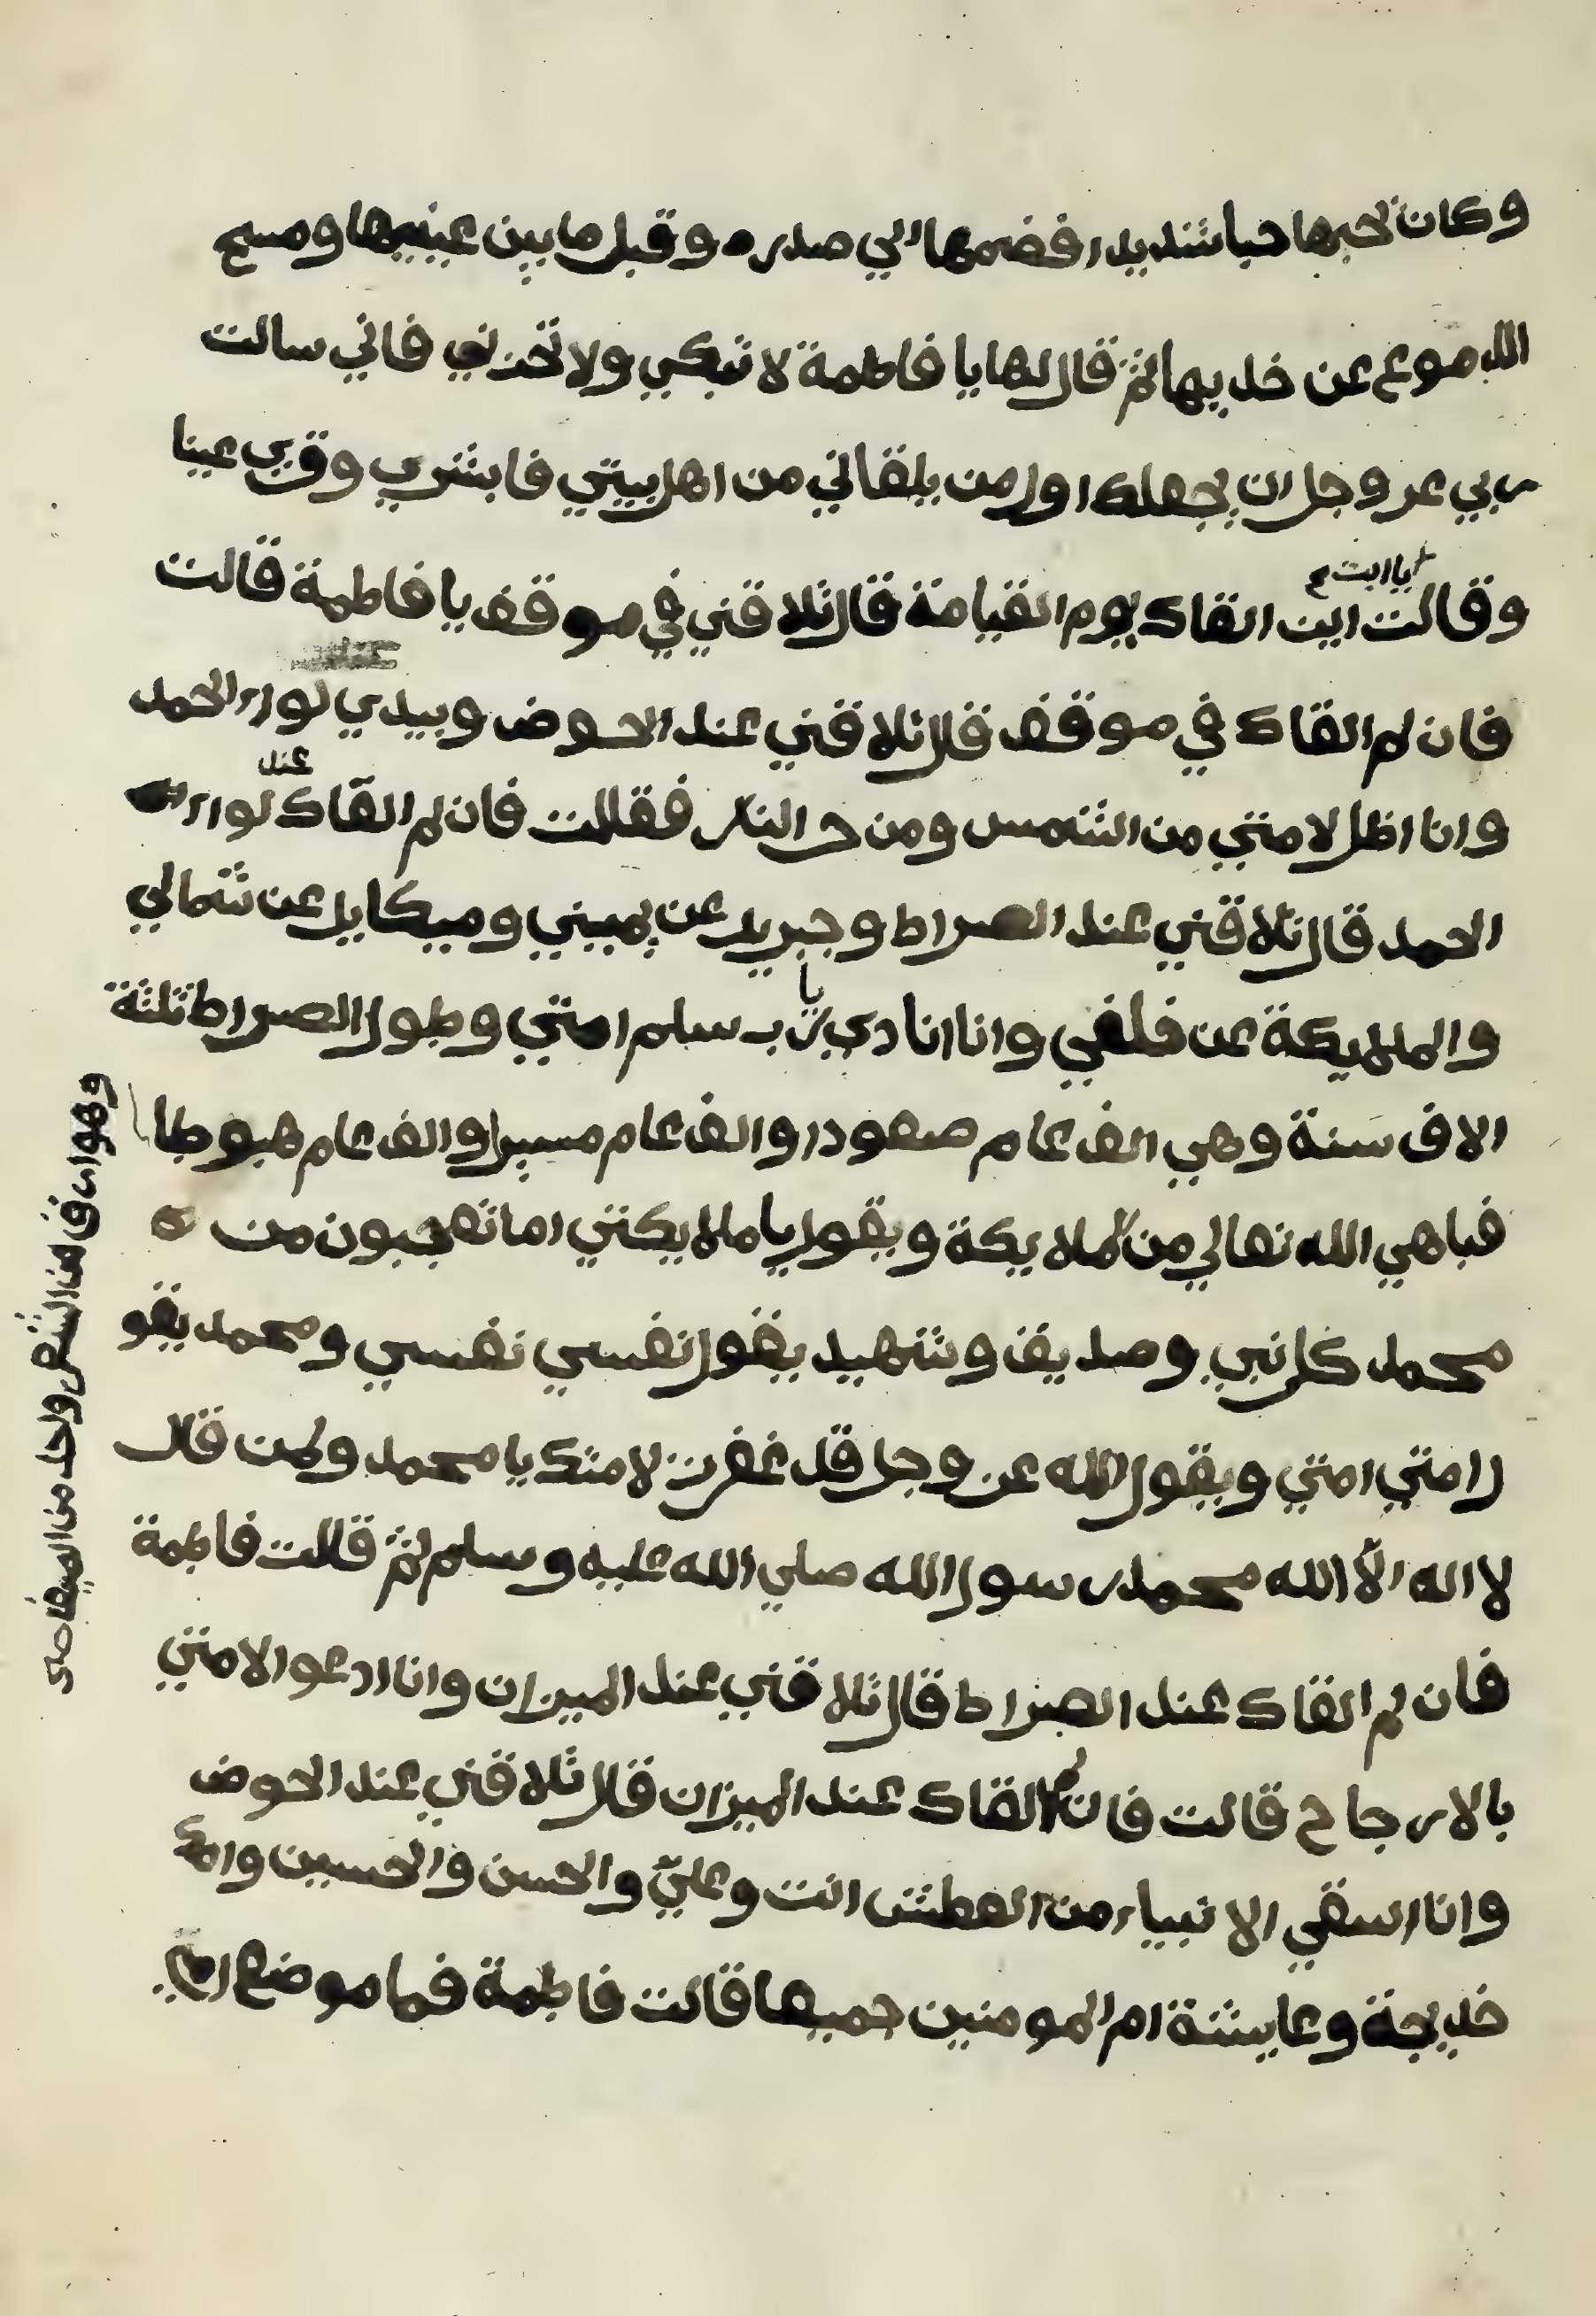 وكان يحبها حبا شديدا فضمها الي صدره وقبل ما بين عينيها ومسح
الدموع عن خديها ثم قال لها يا فاطمة لا تبكي ولا تحزني فاني سالت
ربي عز وجل ان يجعلك اول من يلقاني من اهل بيتي فابشري وقري عينا
يا ابت
وقالت اين القاك يوم القيامة قال تلاقني في موقف يا فاطمة قالت
فان لم القاك في موقف قال تلاقني عند الحوض وبيدي لواء الحمد
عند
وانا اظل لامتي من الشمس ومن حر النار فقالت فان لم القاك لواء
الحمد قال تلاقني عند الصراط وجبريل عن يميني وميكايل عن شمالي
والملايكة عن خلفي وانا انادي يا رب سلم امتي وطول الصراط ثلثة
الاف سنة وهي الف عام صعودا والف عام مسيرا والف عام هبوطا
فباهي الله تعالي من الملايكة ويقول يا ملايكتي اما تعجبون من
محمد كل نبي وصديق وشهيد يقول نفسي نفسي ومحمد يقو
ل امتي امتي ويقول الله عز وجل قد غفرت لامتك يا محمد ولمن قال
لا اله الا الله محمد رسول الله صلي الله عليه وسلم ثم قالت فاطمة
فان لم القاك عند الصراط قال تلاقني عند الميزان وانا ادعوا لامتي
بالارجاح قالت فان لم القاك عند الميزان قال تلاقني عند الحوض
وانا اسقي الانبياء من العطش انت وعلي والحسن والحسين وامك
خديجة وعايشة ام المومنين جميعا قالت فاطمة فما موضع
وهو ادق من الشعر واحد من